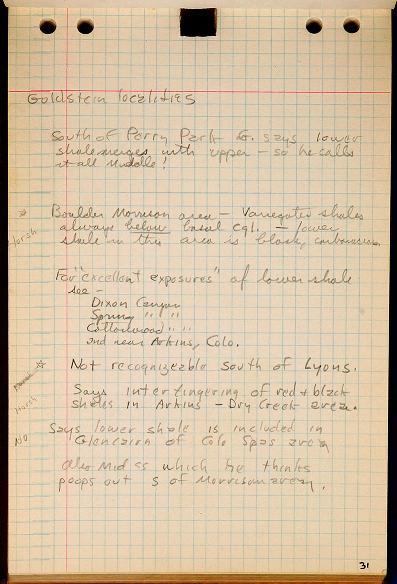 Goldstein localities
South of Perry Park G. says lower
shale merges with upper — so he calls
it all Middle!
☆
Boulder Morrison area — Variegated shales
always below basal cgl. — lower
Marsh
shale in this area is black, carbonaceous
For "excellent exposures" of lower shale
see —
Dixon Canyon
Spring " "
Cottonwood " "
and near Arkins, Colo.
☆ Not recognizeable south of Lyons.
Says interfingering of red + black
Marsh
shales in Arkins — Dry Creek area.
Says lower shale is included in
NO
Glencairn of Colo Spgs area
also Mid ss which he thinks
poops out S of Morrison area.
31